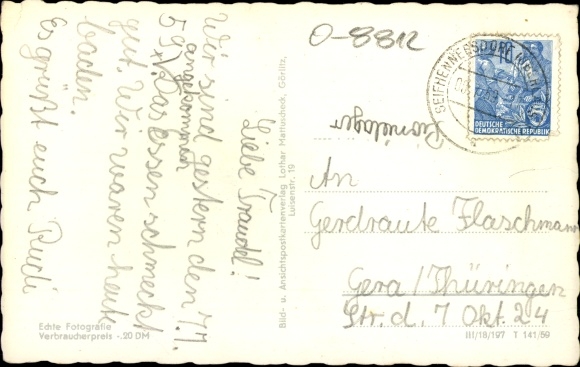 O-8812
SEIFHENNERSDORF
DEUTSCHE
DEMOKRATISCHE REPUBLIK
Liebe Traudel!
Wir sind gestern den 7.7.
59 angekommen
Das essen schmeckt
gut. Wir waren heute
baden.
Es grüßt euch Rudi
Echte Fotografie
Verbraucherpreis -.20 DM
Bild- u. Ansichtspostkartenverlag Lothar Mattuscheck, Görlitz,
Luisenstr. 19
Pionierlager
An
Gerdraute Flaschmann
Gera/Thüringen
Str. d. 7 Okt. 24
III/18/197 T 141/59